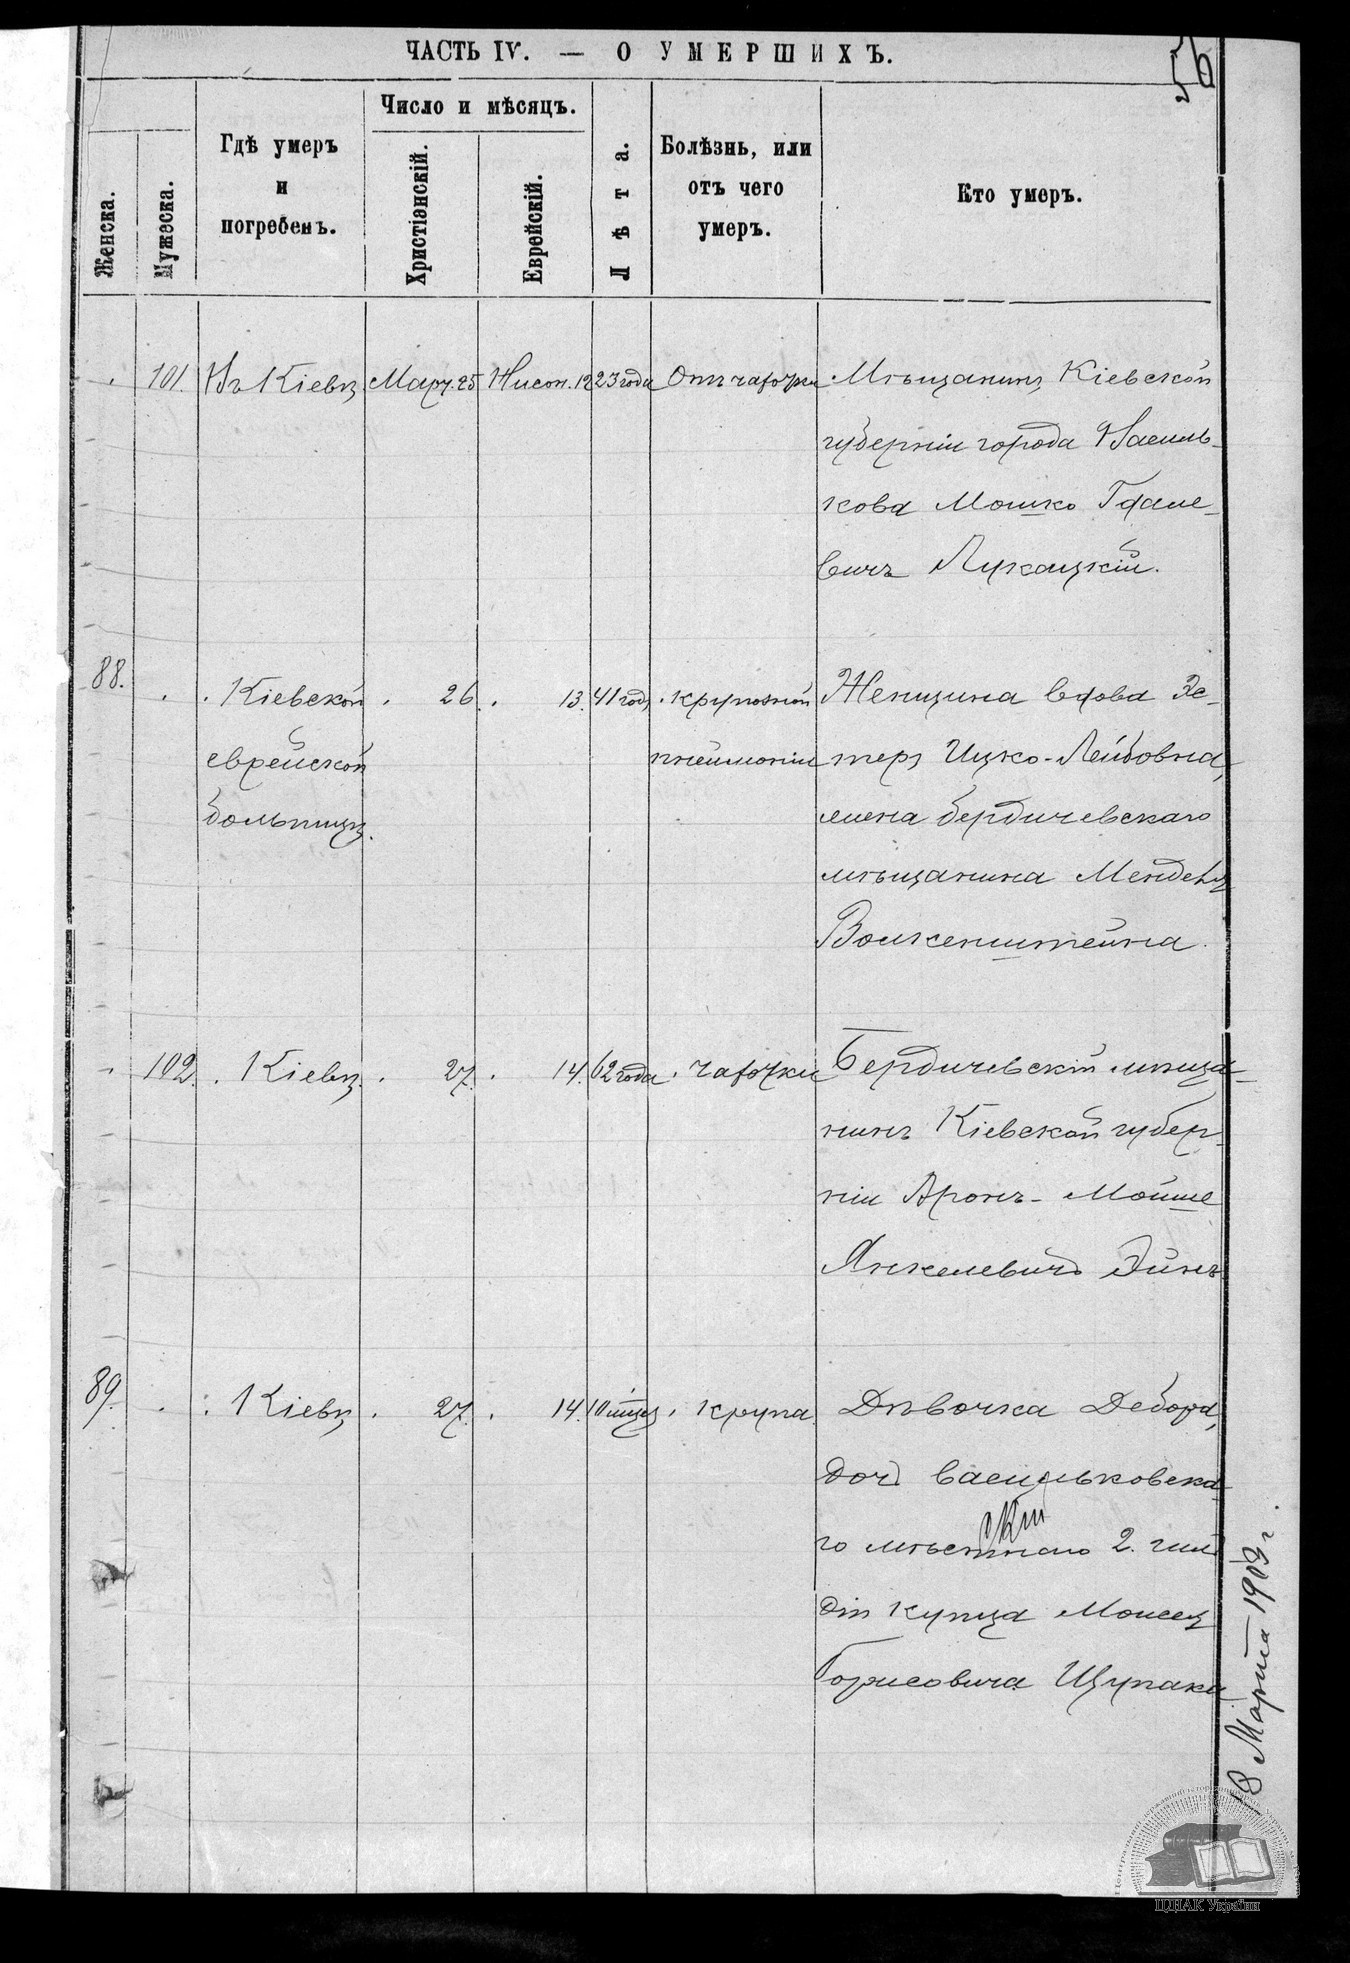 ЧАСТЬ IV. — О УМЕРШИХЪ.
56
Женска.
Мужеска.
Гдѣ умеръ
и
погребенъ.
Число и мѣсяцъ.
Христіанскій.
Еврейскій.
Лѣта.
Болѣзнь, или
отъ чего
умеръ.
Кто умеръ.
101. Въ Кіевѣ Март. 25 Нисон. 12 23 года Отъ чахотки Мѣщанинъ Кіевской
губерніи города Василь-
кова Мошко Гдале-
вичъ Лукацкій.
88. Кіевской 26. 13. 41 годъ крупозной Женщина вдова Эс-
еврейской пнеймоніи теръ Ицко-Лейбовна,
больницѣ. жена бердичевскаго
мѣщанина Менделя
Волкенштейна.
102. Кіевѣ. 27. 14. 62 года чахотки Бердичевскій мѣща-
нинъ Кіевской губер-
ніи Аронъ-Мойше
Янкелевичъ Эйнъ
89. Кіевѣ 27. 14. 10 мѣсяц. крупа Дѣвочка Дебора,
дочь васильковска-
го 2. гиль
діи купца Моисея
Борисовича Щупака
18 Марта 1903 г.
ЦДІАК України